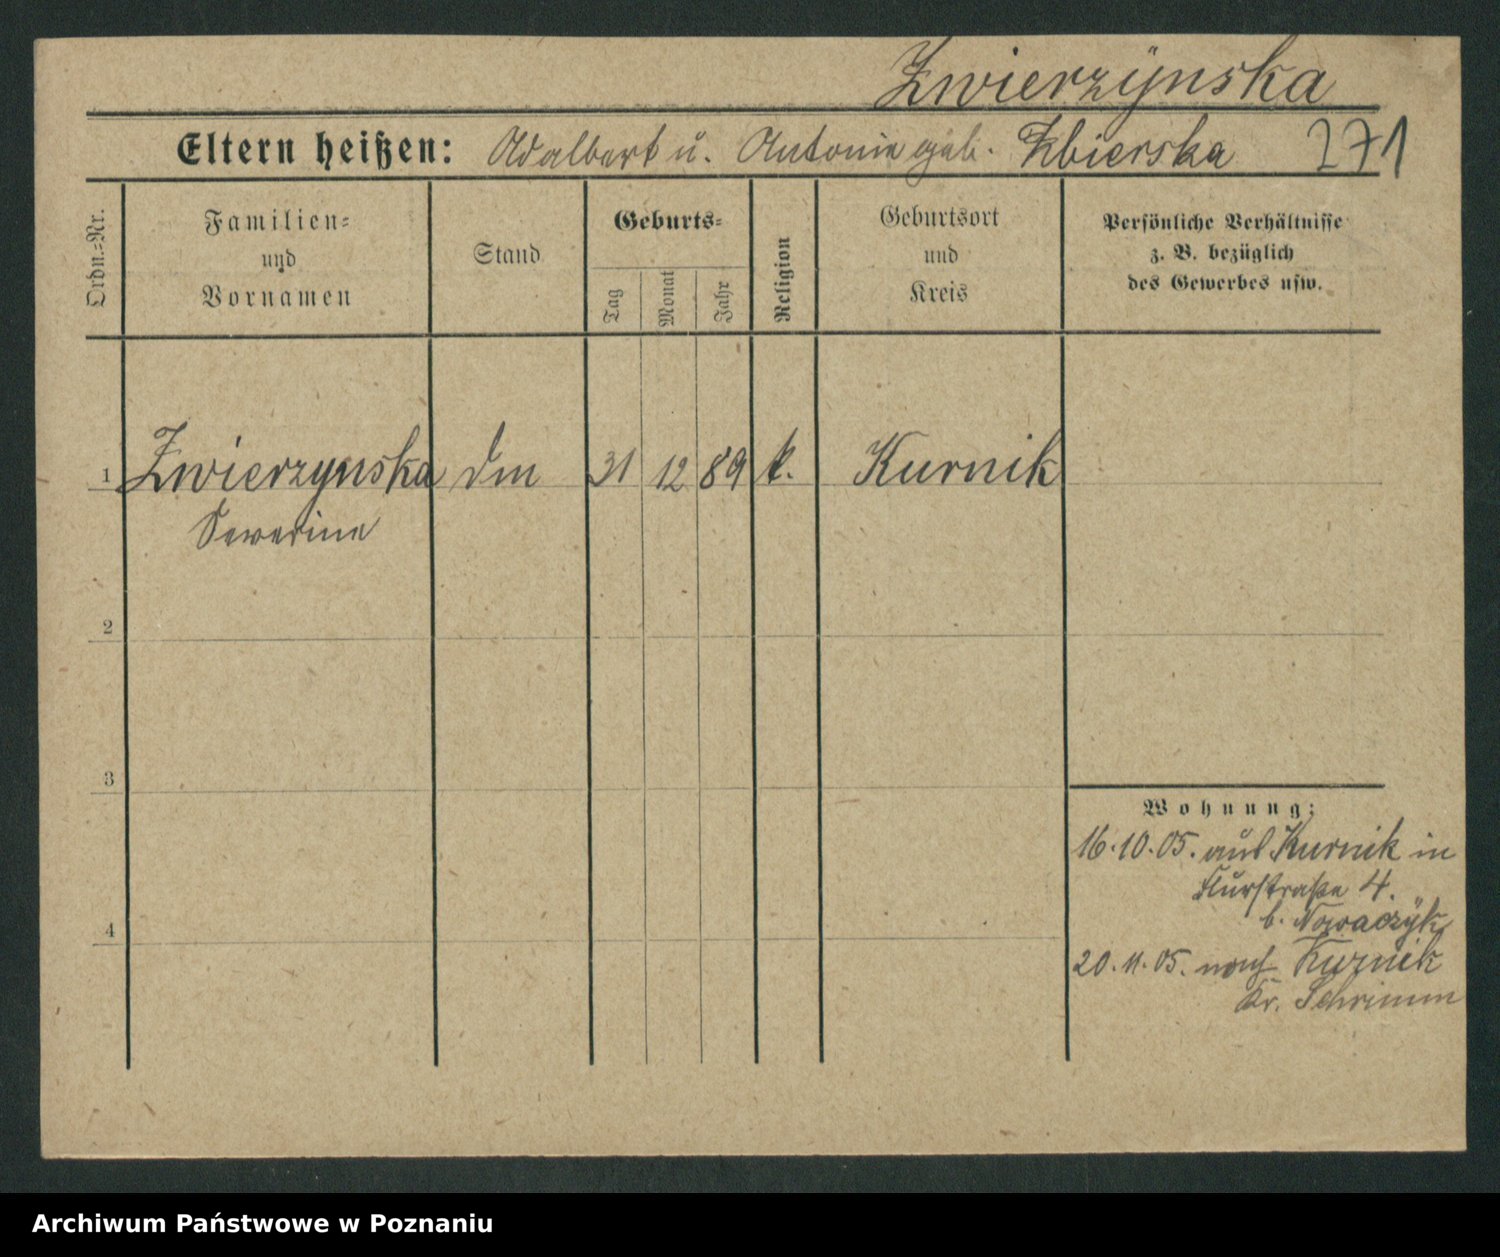 Zwierzÿnska
Eltern heißen: Adalbert u. Antonie geb. Zbierska 271
Ordn.=Nr.
Familien=
und
Vornamen
Stand
Geburts=
Tag
Monat
Jahr
Religion
Geburtsort
und
Kreis
Persönliche Verhältnisse
z. B. bezüglich
des Gewerbes usw.
1 Zwierzynska 31 12 89 k. Kurnik
Severine
2
3
Wohnung:
16.10.05. aus Kurnik in
Flurstraße 4.
b. Nowaczÿk
4
20.11.05. nach Kurnik
Kr. Schrimm
Archiwum Państwowe w Poznaniu